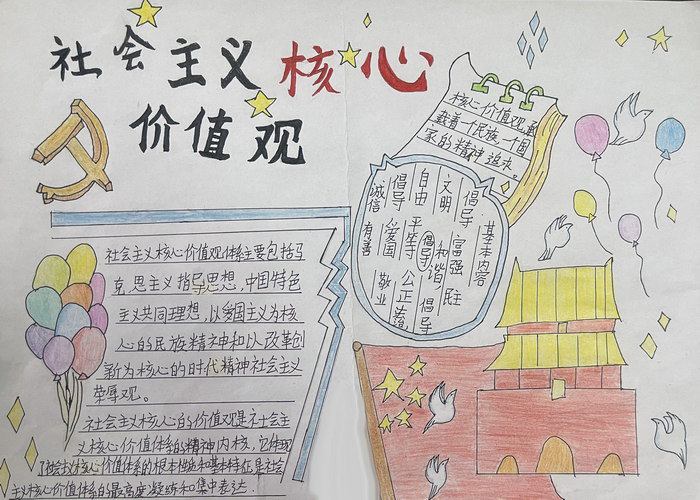 社会主义核心
价值观
核心价值观,承
载着一个民族,一个国
家的精神追求。
基本内容
倡导:富强民主
文明和谐
倡导自由
平等公正法治
倡导爱国敬业
诚信友善
社会主义核心价值观体系主要包括马
克思主义指导思想,中国特色
主义共同理想,以爱国主义为核
心的民族精神和以改革创
新为核心的时代精神社会主义
荣辱观。
社会主义核心的价值观是社会主
义核心价值体系的精神内核,它体现
了社会主义核心价值体系的根本性质和基本特征是社会
主义核心价值体系的最高度凝练和集中表达.